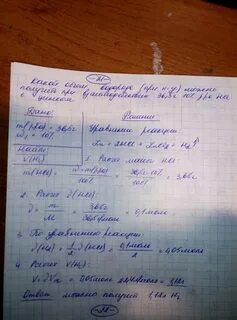 -21-
Какой объем водорода (при н.у) можно
получить при взаимодействии 36,5г 10% р-ра HCl
с цинком
Дано:
Решение
m(р-ра) = 36,5г
Уравнение реакции:
Zn + 2HCl = ZnCl2 + H2↑
Найти:
V(H2)
1. Расчет массы HCl:
m(HCl) = 36,5г·10% / 100% = 3,65г
2. Расчет ν(HCl):
ν = m/M = 3,65г / 36,5г/моль = 0,1моль
3. По уравнению реакции:
ν(H2) = 1/2 ν(HCl) = 0,1моль/2 = 0,05моль
4. Расчет V(H2):
V = ν·Vm = 0,05моль · 22,4л/моль = 1,12л
Ответ: можно получить 1,12л H2